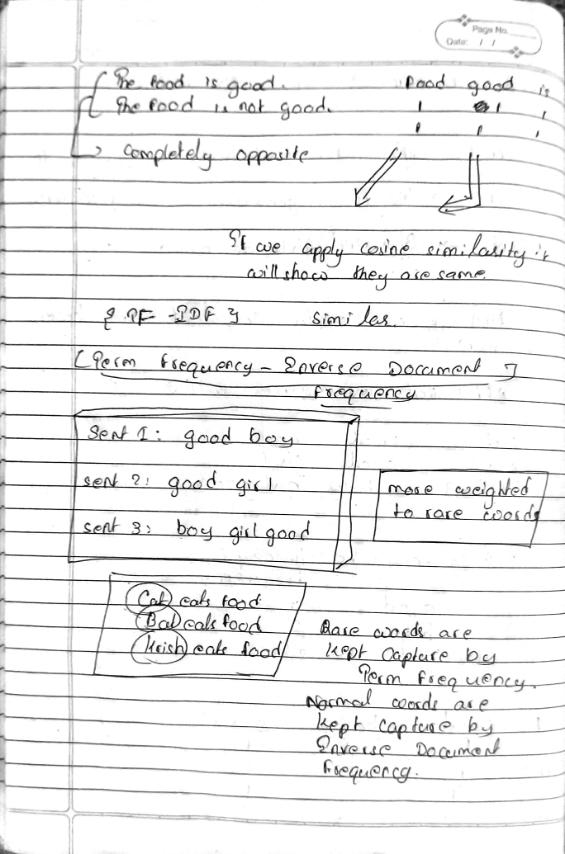 Page No.
Date: / /
The food is good. food good is
The food is not good. 1 1 1
1 1 1
→ Completely opposite
If we apply cosine similarity it
will show they are same.
{ TF-IDF } similar.
[Term Frequency - Inverse Document]
Frequency
Sent 1: good boy
sent 2: good girl
sent 3: boy girl good
more weighted
to rare words
Cat eats food
Bat eats food
Krish eats food
Rare words are
kept Capture by
Term Frequency.
Normal words are
kept capture by
Inverse Document
Frequency.